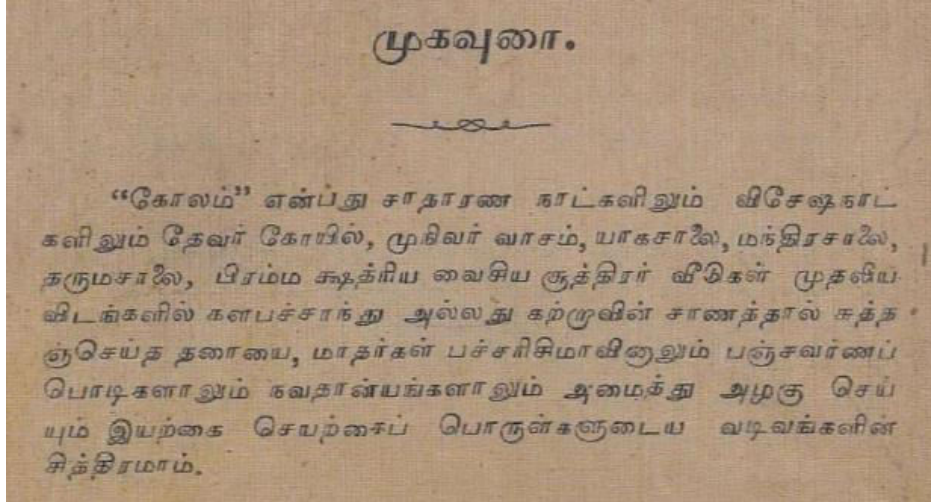 முகவுரை.
“கோலம்” என்பது சாதாரண நாட்களிலும் விசேஷநாட்
களிலும் தேவர் கோயில், முநிவர் வாசம், யாகசாலை, மந்திரசாலை,
தருமசாலை, பிரம்ம க்ஷத்ரிய வைசிய சூத்திரர் வீடுகள் முதலிய
விடங்களில் களபச்சாந்து அல்லது கற்றாவின் சாணத்தால் சுத்த
ஞ்செய்த தரையை, மாதர்கள் பச்சரிசிமாவினாலும் பஞ்சவர்ணப்
பொடிகளாலும் நவதான்யங்களாலும் அமைத்து அழகு செய்
யும் இயற்கை செயற்கைப் பொருள்களுடைய வடிவங்களின்
சித்திரமாம்.